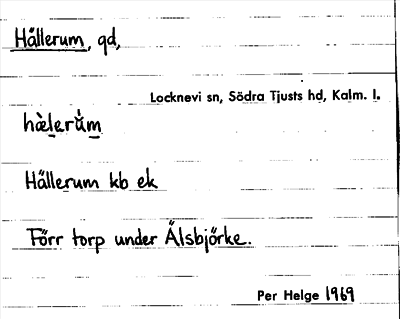 Hällerum, gd,
Locknevi sn, Södra Tjusts hd, Kalm. l.
hæ̀lerǘm
Hällerum kb ek
Förr torp under Älsbjörke.
Per Helge 1969